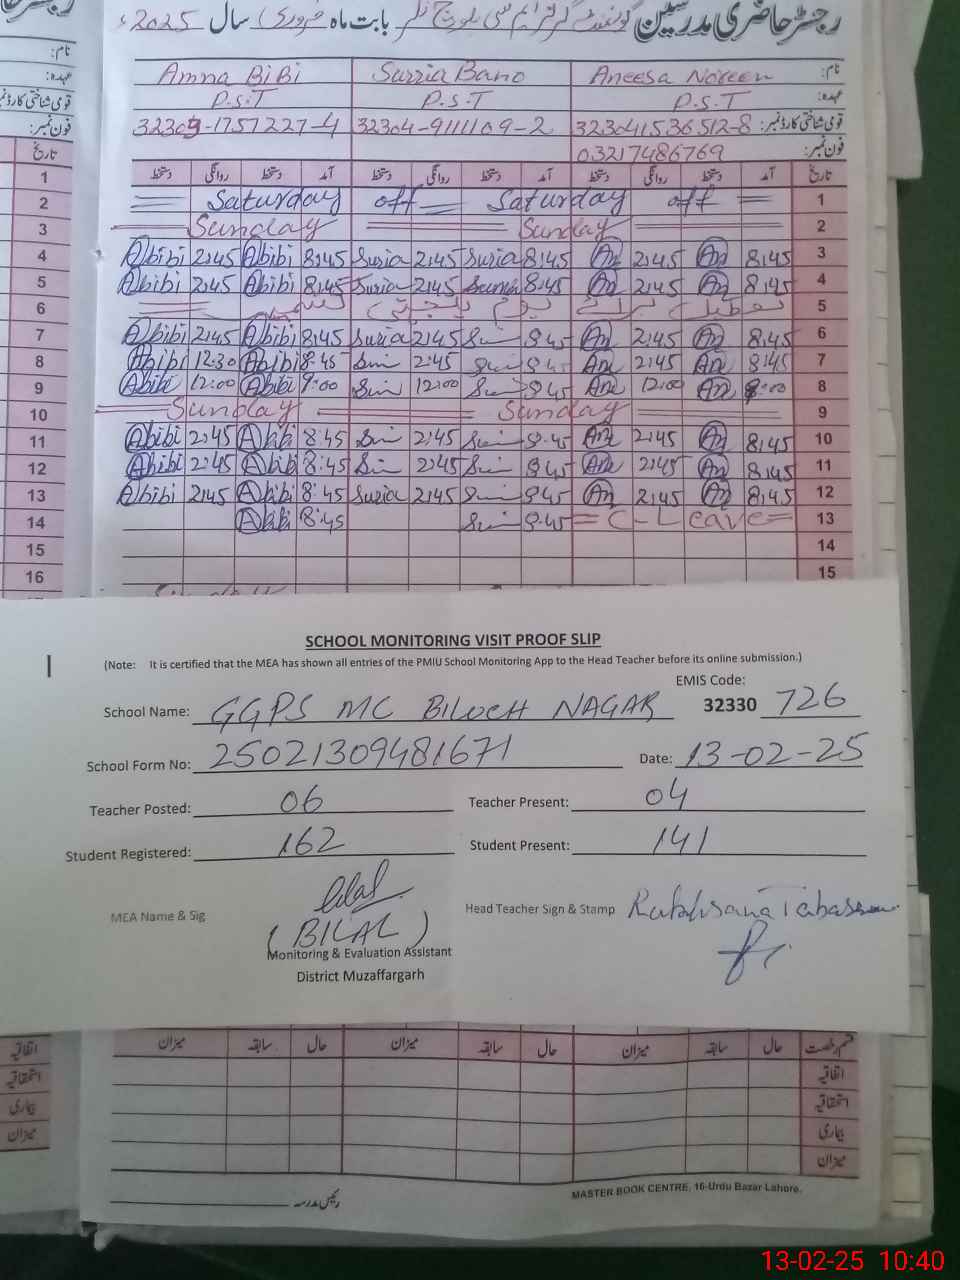 رجسٹر حاضری مدرسین گورنمنٹ گرلز ایم سی بلوچ نگر بابت ماہ فروری سال 2025ء
نام: Aneesa Noreen Surria Bano Amna BiBi
عہدہ: P.S.T P.S.T P.S.T
قومی شناختی کارڈ نمبر: 323041536512-8 32304-9111109-2 32309-1757227-4
فون نمبر: 03217486769
تاریخ آمد دستخط روانگی دستخط آمد دستخط روانگی دستخط آمد دستخط روانگی دستخط
1 Saturday off Saturday off
2 Sunday Sunday
3 8:45 An 2:45 An 8:45 Suria 2:45 Suria 8:45 Abibi 2:45 Abibi
4 8:45 An 2:45 An 8:45 Suria 2:45 Suria 8:45 Abibi 2:45 Abibi
5 تعطیل برائے یوم یکجہتی کشمیر
6 8:45 An 2:45 An 8:45 Sui 2:45 Suria 8:45 Abibi 2:45 Abibi
7 8:45 An 2:45 An 8:45 Sui 2:45 Sui 8:45 Abibi 12:30 Abibi
8 9:00 An 12:00 An 8:45 Sui 12:00 Sui 9:00 Abibi 12:00 Abibi
9 Sunday Sunday
10 8:45 An 2:45 An 8:45 Sui 2:45 Sui 8:45 Abibi 2:45 Abibi
11 8:45 An 2:45 An 8:45 Sui 2:45 Sui 8:45 Abibi 2:45 Abibi
12 8:45 An 2:45 An 8:45 Sui 2:45 Suria 8:45 Abibi 2:45 Abibi
13 C-Leave 8:45 Sui 8:45 Abibi
14
15
نام:
عہدہ:
قومی شناختی کارڈ نمبر
فون نمبر:
تاریخ
1
2
3
4
5
6
7
8
9
10
11
12
13
14
15
16
SCHOOL MONITORING VISIT PROOF SLIP
(Note: It is certified that the MEA has shown all entries of the PMIU School Monitoring App to the Head Teacher before its online submission.)
School Name: GGPS MC BILOCH NAGAR EMIS Code: 32330 726
School Form No: 25021309481671 Date: 13-02-25
Teacher Posted: 06 Teacher Present: 04
Student Registered: 162 Student Present: 141
MEA Name & Sig Bilal Head Teacher Sign & Stamp Rukhsana Tabassum
(BILAL)
Monitoring & Evaluation Assistant
District Muzaffargarh
قسم رخصت حال سابقہ میزان حال سابقہ میزان حال سابقہ میزان
اتفاقیہ
استحقاقیہ
بیماری
میزان
اتفاقیہ
استحقاقیہ
بیماری
میزان
رئیس مدرسہ
MASTER BOOK CENTRE, 16-Urdu Bazar Lahore.
13-02-25 10:40